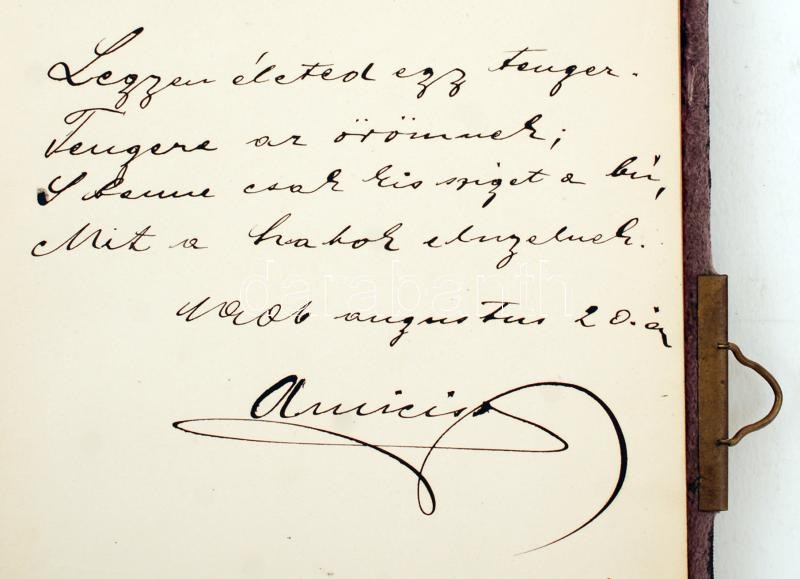 Legyen életed egy tenger.
Tengere az örömnek;
S benne csak kis sziget a bú,
Mit a habok elnyelnek.
augustus 20.án
Amicis
darabanth